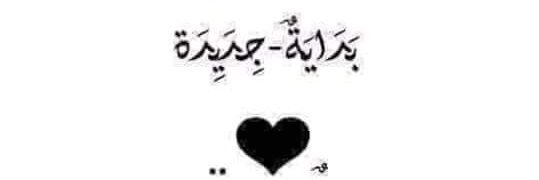 بَدَايَةٌ-جِدِيِدَة
..